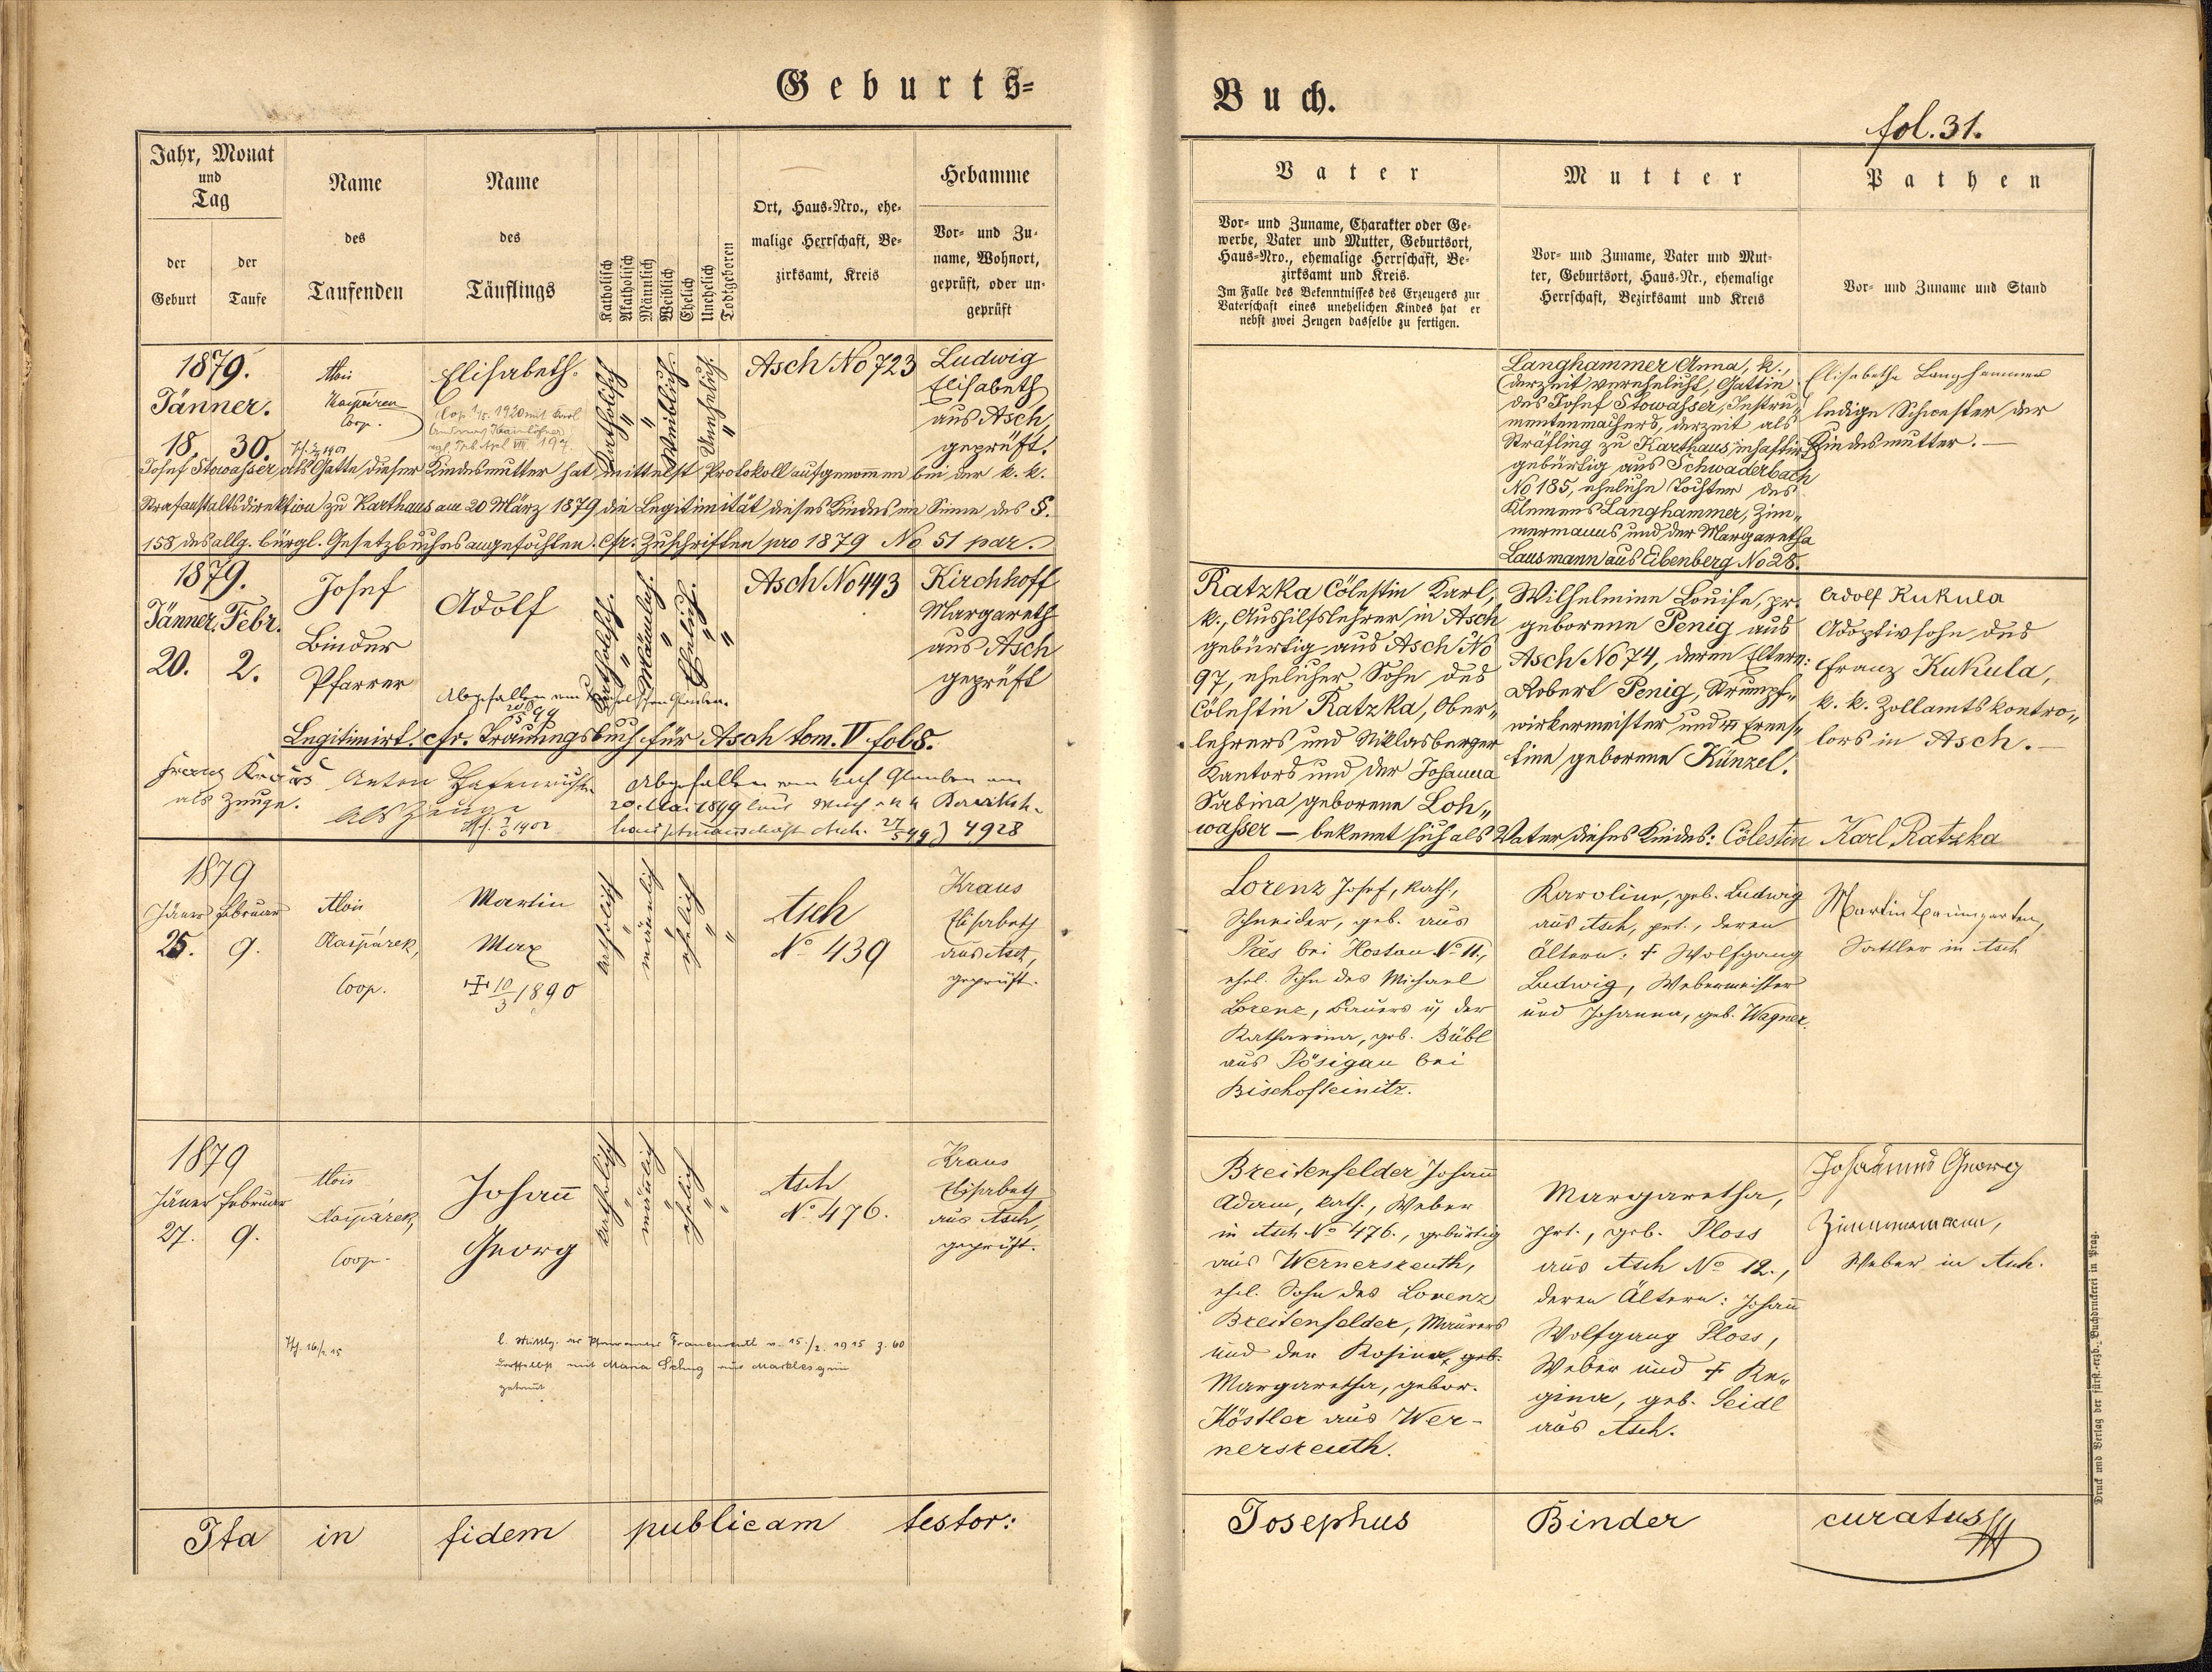 Geburts-
Buch.
fol. 31.
Jahr, Monat
und
Tag
der
Geburt
der
Taufe
Name
des
Taufenden
Name
des
Täuflings
Katholisch
Akatholisch
Männlich
Weiblich
Ehelich
Unehelich
Todtgeboren
Ort, Haus-Nro., ehe-
malige Herrschaft, Be-
zirksamt, Kreis
Hebamme
Vor- und Zu-
name, Wohnort,
geprüft, oder un-
geprüft
Vater
Vor- und Zuname, Charakter oder Ge-
werbe, Vater und Mutter, Geburtsort,
Haus-Nro., ehemalige Herrschaft, Be-
zirksamt und Kreis.
Im Falle des Bekenntnisses des Erzeugers zur
Vaterschaft eines unehelichen Kindes hat er
nebst zwei Zeugen dasselbe zu fertigen.
Mutter
Vor- und Zuname, Vater und Mut-
ter, Geburtsort, Haus-Nr., ehemalige
Herrschaft, Bezirksamt und Kreis
Pathen
Vor- und Zuname und Stand
1879.
Jänner.
18. 30.
Alois
Kaspárek
Coop.
Elisabeth.
Cop. 1/5. 1920 mit
Katholisch
"
"
Weiblich.
Unehelich.
"
Asch No 723
Ludwig
Elisabeth
aus Asch,
geprüft.
Josef Stowasser als Gatte dieser Kindesmutter hat mittelst Protokoll aufgenommen bei der k. k.
Strafanstaltsdirektion zu Karthaus am 20 März 1879 die Legitimität dieses Kindes im Sinne des §.
158 des allg. bürgl. Gesetzbuches angefochten. Cfr. Zuschriften pro 1879 No 51 par.
Langhammer Anna, k.,
(derzeit verehelicht, Gattin
des Josef Stowasser, Instru-
mentenmachers, derzeit als
Sträfling zu Karthaus inhaftirt)
gebürtig aus Schwaderbach
No 185, eheliche Tochter des
Klemens Langhammer, Zim-
mermanns und der Margaretha
Lausmann aus Eibenberg No 28.
Elisabetha Langhammer
ledige Schwester der
Kindesmutter. —
1879.
Jänner. Febr.
20. 2.
Josef
Binder
Pfarrer
Adolf
Katholisch.
"
Männlich.
"
Ehelich.
"
"
Asch No 443
Kirchhoff
Margareth
aus Asch
geprüft
Abgefallen vom katholischen Glauben.
Legitimirt. cfr. Trauungsbuch für Asch tom. V fol 8.
Franz Kraus
als Zeuge.
Anton
als Zeuge
Abgefallen vom kath Glauben am
20. Mai 1899 laut
4928
Ratzka Cölestin Karl,
k., Aushilfslehrer in Asch
gebürtig aus Asch No
97, ehelicher Sohn des
Cölestin Ratzka, Ober-
lehrers und Niklasberger
Kantors und der Johanna
Sabina geborene Loh-
wasser — bekennt sich als Vater dieses Kindes: Cölestin Karl Ratzka
Wilhelmine Louise, pr.
geborene Penig aus
Asch No 74, deren Eltern:
Robert Penig, Strumpf-
wirkermeister und Ernes-
tine geborene Künzel.
Adolf Kukula
Adoptivsohn des
Franz Kukula,
k. k. Zollamtskontro-
lors in Asch. —
1879
Jäner Februar
25. 9.
Alois
Kaspárek,
Coop.
Martin
Max
✠ 10/3 1890
katholisch
"
männlich
"
ehelich
"
"
Asch
No 439
Kraus
Elisabeth
aus Asch,
geprüft.
Lorenz Josef, kath.,
Schneider, geb. aus
Prěs bei Hostau No 11.,
ehel. Sohn des Michael
Lorenz, Bauers u. der
Katharina, geb. Bübl
aus Pösigau bei
Bischofteinitz.
Karoline, geb. Ludwig
aus Asch, prt., deren
Ältern: † Wolfgang
Ludwig, Webermeister
und Johanna, geb. Wagner.
Martin Baumgarten,
Sattler in Asch
1879
Jäner Februar
27. 9.
Alois
Kaspárek,
Coop.
Johann
Georg
katholisch
"
männlich
"
ehelich
"
"
Asch
No 476.
Kraus
Elisabeth
aus Asch,
geprüft.
mit Maria
getraut
Breitenfelder Johann
Adam, kath., Weber
in Asch No 476., gebürtig
aus Wernersreuth,
ehel. Sohn des Lorenz
Breitenfelder, Maurers
und der Rosina, geb.
Margaretha, gebor.
Köstler aus Wer-
nersreuth.
Margaretha,
prt., geb. Ploss
aus Asch No 12.,
deren Ältern: Johann
Wolfgang Ploss,
Weber und † Re-
gina, geb. Seidl
aus Asch.
Johannes Georg
Zimmermann,
Weber in Asch.
Ita in fidem publicam testor:
Josephus Binder curatus
Druck und Verlag der fürst.-erzb. Buchdruckerei in Prag.